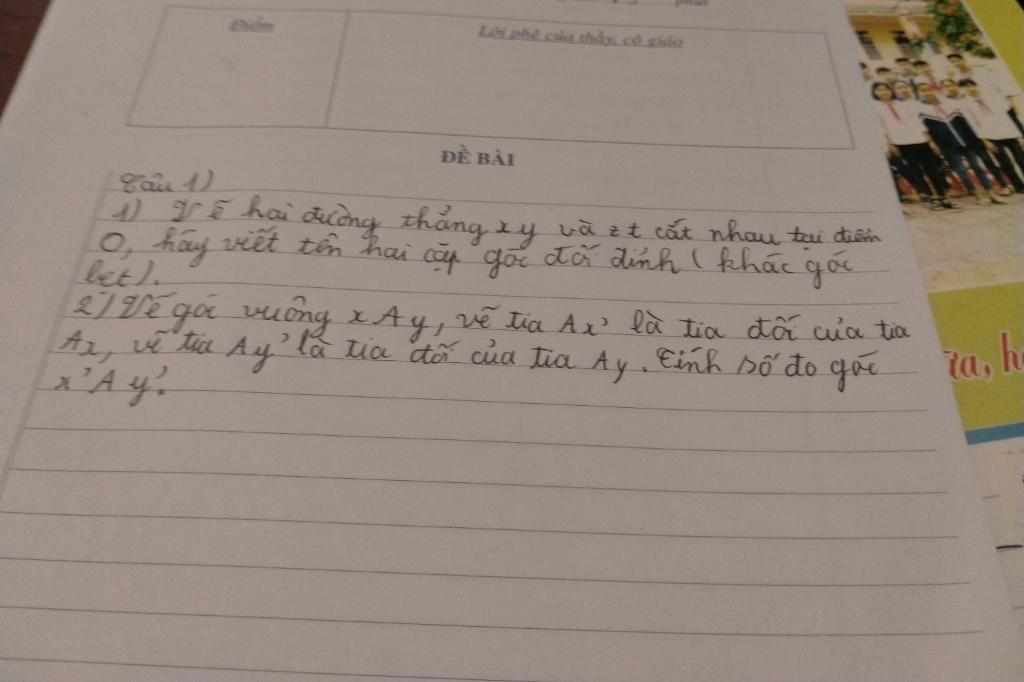 Điểm
Lời phê của thầy, cô giáo
ĐỀ BÀI
Câu 1)
1) Vẽ hai đường thẳng xy và zt cắt nhau tại điểm
O, hãy viết tên hai cặp góc đối đỉnh (khác góc
bẹt).
2) Vẽ góc vuông xAy, vẽ tia Ax' là tia đối của tia
Ax, vẽ tia Ay' là tia đối của tia Ay. Tính số đo góc
x'Ay'.